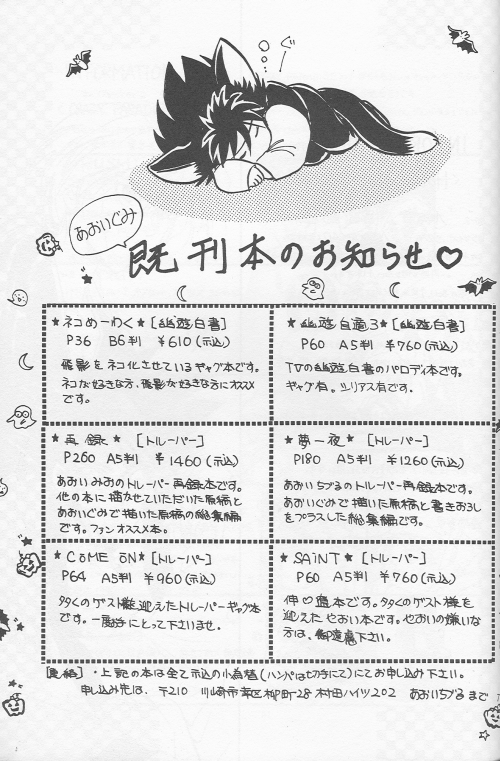 ぐー
あおいぐみ
既刊本のお知らせ♡
★ネコめーわく★[幽遊白書]
P36 B6判 ¥610(〒込)
飛影をネコ化させているギャグ本です。
ネコが好きな方、飛影が好きな方にオススメ
です。
★幽遊自適3★[幽遊白書]
P60 A5判 ¥760(〒込)
TVの幽遊白書のパロディ本です。
ギャグ有。シリアス有です。
★再録★[トルーパー]
P260 A5判 ¥1460(〒込)
あおいみおのトルーパー再録本です。
他の本に描かせていただいた原稿と
あおいぐみで描いた原稿の総集編
です。ファンオススメ本。
★夢一夜★[トルーパー]
P180 A5判 ¥1260(〒込)
あおいちづるのトルーパー再録本です。
あおいぐみで描いた原稿と書きおろし
をプラスした総集編です。
★CōME ōN★[トルーパー]
P64 A5判 ¥960(〒込)
多々くのゲスト様迎えたトルーパーギャグ本
です。一度手にとって下さいませ。
★SAiNT★[トルーパー]
P60 A5判 ¥760(〒込)
伸♡当本です。多々くのゲスト様を
迎えたやおい本です。やおいの嫌いな
方は、御遠慮下さい。
・上記の本は全て〒込の小為替(ハンパは切手にて)にてお申し込み下さい。
申し込み先は、〒210 川崎市幸区柳町28 村田ハイツ202 あおいちづるまで